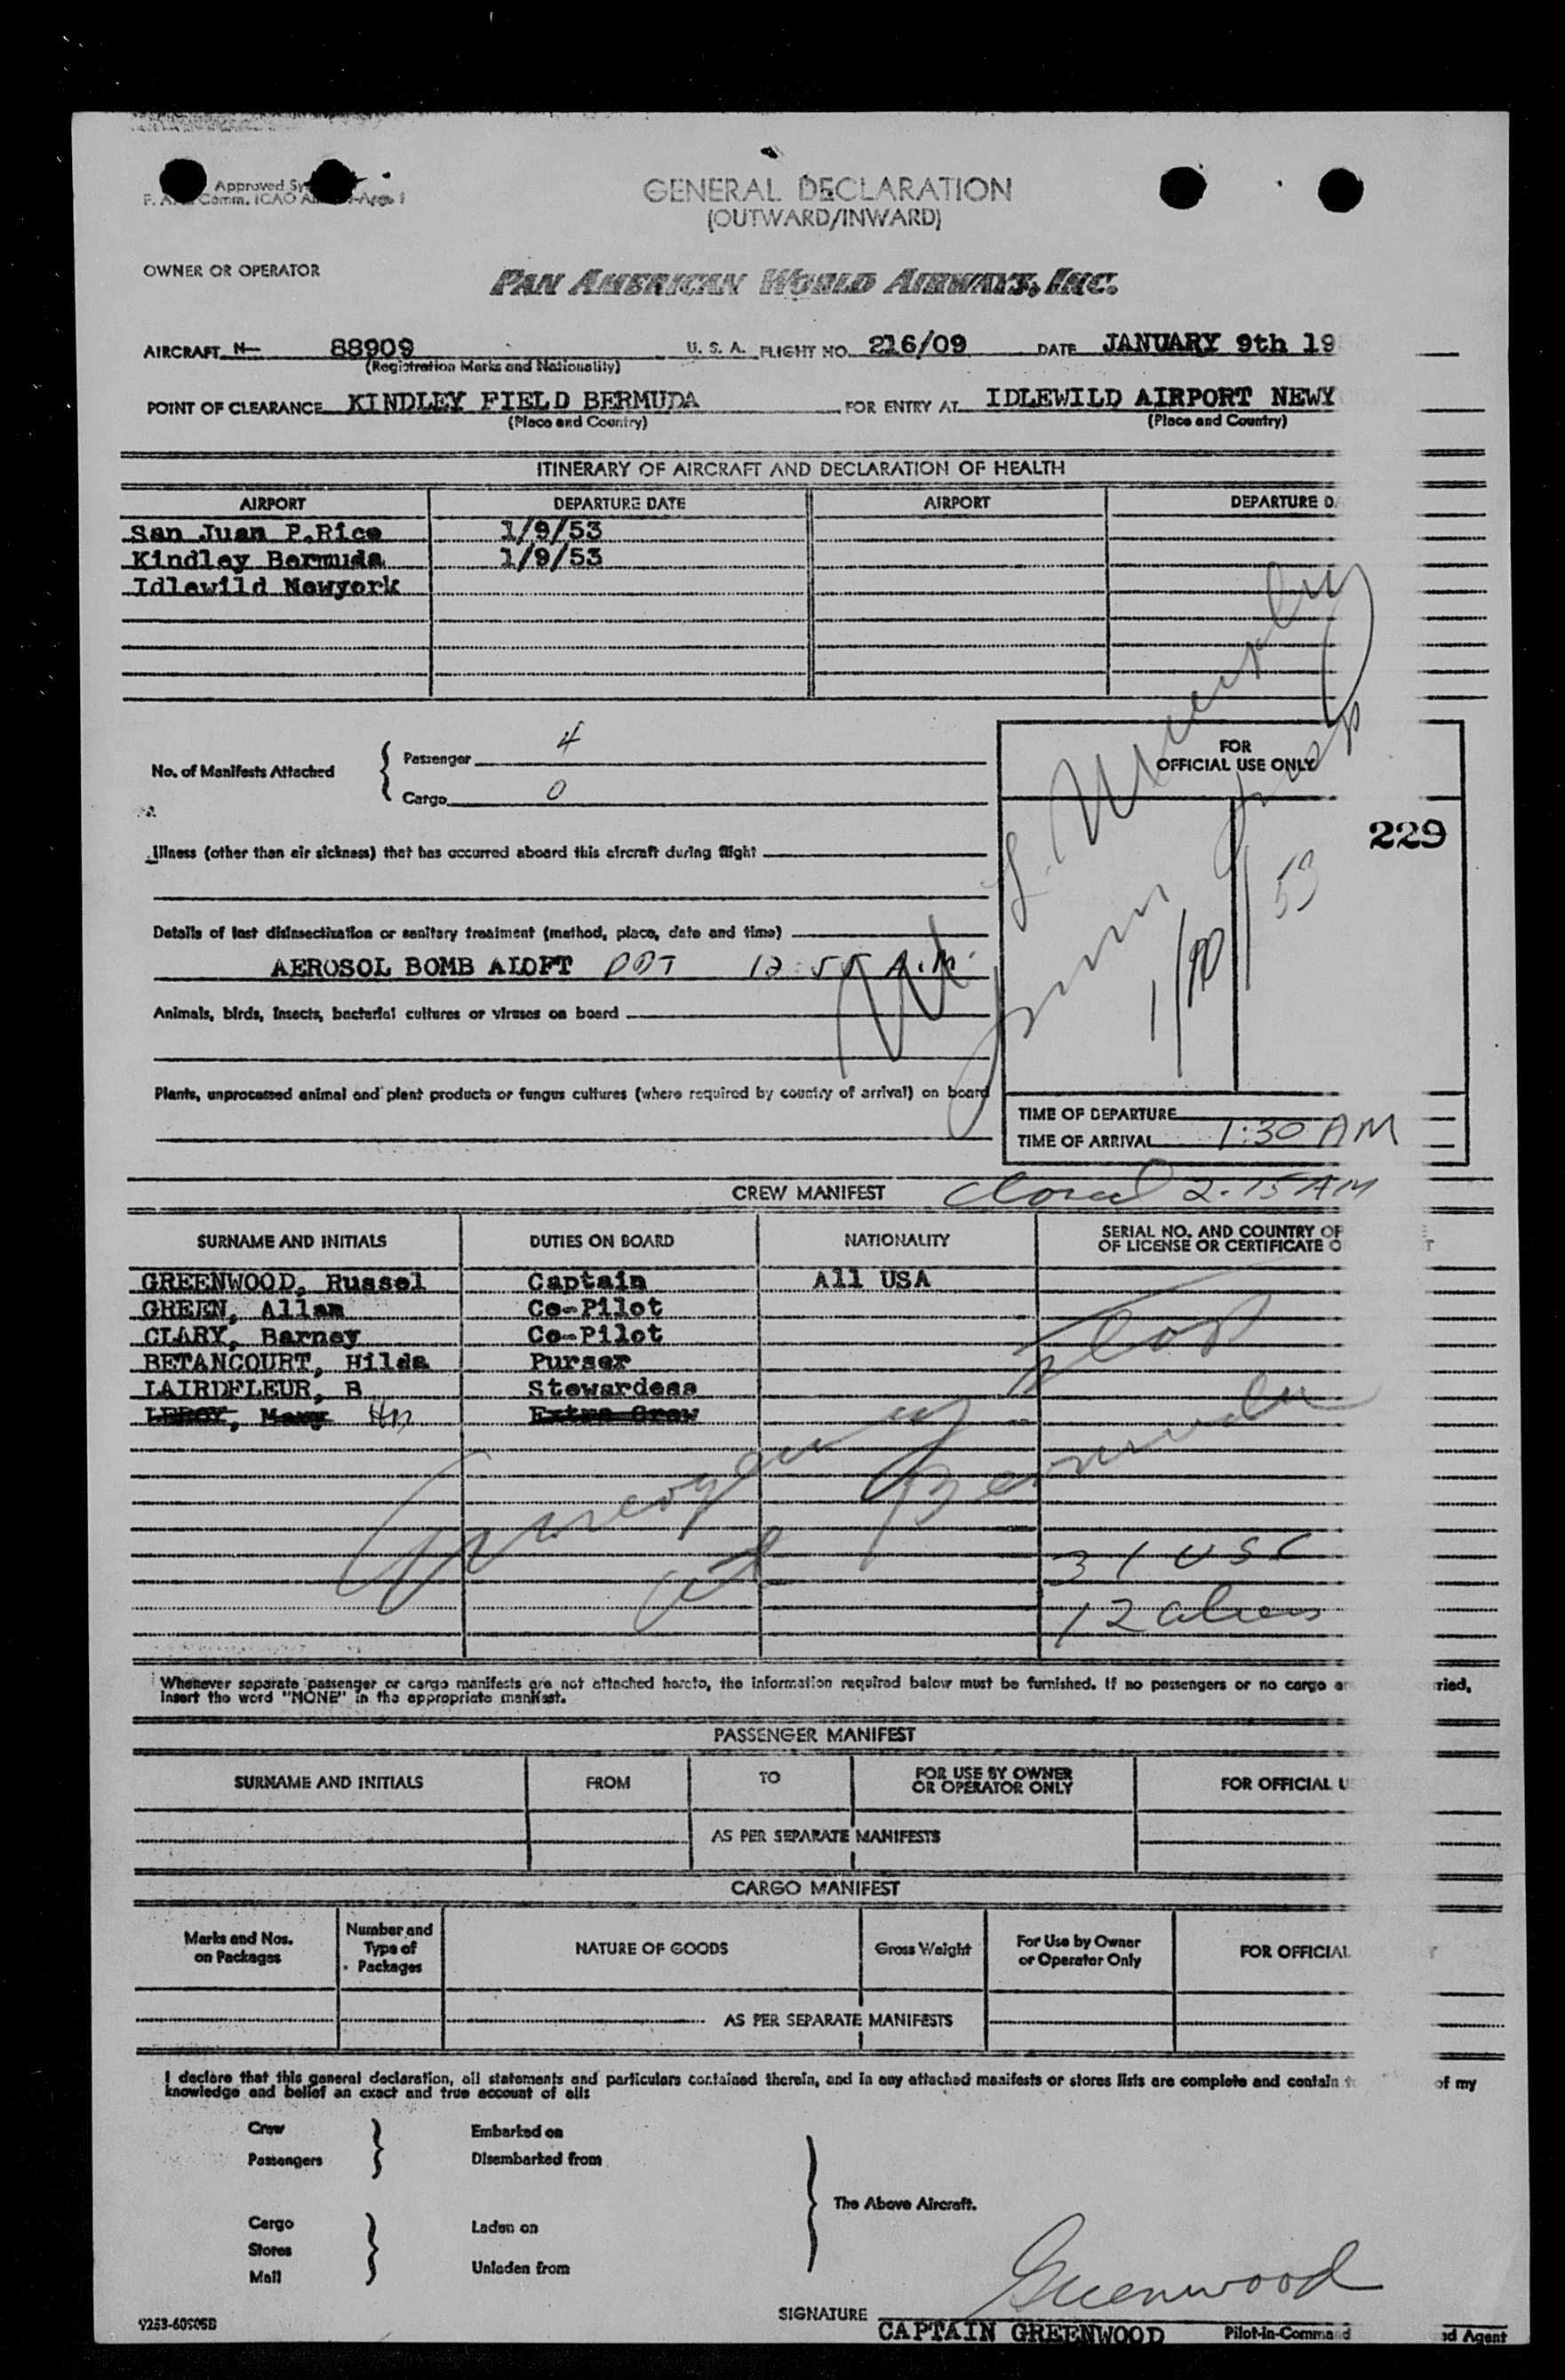 Approved
Comm. ICAO
GENERAL DECLARATION
(OUTWARD/INWARD)
OWNER OR OPERATOR
PAN AMERICAN WORLD AIRWAYS, INC.
AIRCRAFT N- 88909 U. S. A. FLIGHT NO. 216/09 DATE JANUARY 9th 19
(Registration Marks and Nationality)
POINT OF CLEARANCE KINDLEY FIELD BERMUDA FOR ENTRY AT IDLEWILD AIRPORT NEWY
(Place and Country) (Place and Country)
ITINERARY OF AIRCRAFT AND DECLARATION OF HEALTH
AIRPORT DEPARTURE DATE AIRPORT DEPARTURE DA
San Juan P.Rico 1/9/53
Kindley Bermuda 1/9/53
Idlewild Newyork
No. of Manifests Attached
Passenger 4
Cargo 0
FOR
OFFICIAL USE ONLY
229
Illness (other than air sickness) that has occurred aboard this aircraft during flight
Details of last disinsectization or sanitary treatment (method, place, date and time)
AEROSOL BOMB ALOFT DDT 12:55 A.M.
Animals, birds, insects, bacterial cultures or viruses on board
1/10/53
Plants, unprocessed animal and plant products or fungus cultures (where required by country of arrival) on board
TIME OF DEPARTURE
TIME OF ARRIVAL 1:30 AM
CREW MANIFEST Closed 2.15 AM
SURNAME AND INITIALS DUTIES ON BOARD NATIONALITY SERIAL NO. AND COUNTRY OF
OF LICENSE OR CERTIFICATE O
GREENWOOD, Russel Captain All USA
GREEN, Allan Co-Pilot
CLARY, Barney Co-Pilot
BETANCOURT, Hilda Purser
LAIRDFLEUR, B Stewardess
LEROY, Mary Extra Crew
stop
at Bermuda
31 USC
12 aliens
Whenever separate passenger or cargo manifests are not attached hereto, the information required below must be furnished. If no passengers or no cargo ar ried,
insert the word "NONE" in the appropriate manifest.
PASSENGER MANIFEST
SURNAME AND INITIALS FROM TO FOR USE BY OWNER
OR OPERATOR ONLY FOR OFFICIAL US
AS PER SEPARATE MANIFESTS
CARGO MANIFEST
Marks and Nos.
on Packages
Number and
Type of
Packages
NATURE OF GOODS
Gross Weight
For Use by Owner
or Operator Only
FOR OFFICIAL
AS PER SEPARATE MANIFESTS
I declare that this general declaration, all statements and particulars contained therein, and in any attached manifests or stores lists are complete and contain of my
knowledge and belief an exact and true account of all:
Crew
Passengers
Embarked on
Disembarked from
The Above Aircraft.
Cargo
Stores
Mail
Laden on
Unladen from
Greenwood
SIGNATURE
CAPTAIN GREENWOOD Pilot-in-Command d Agent